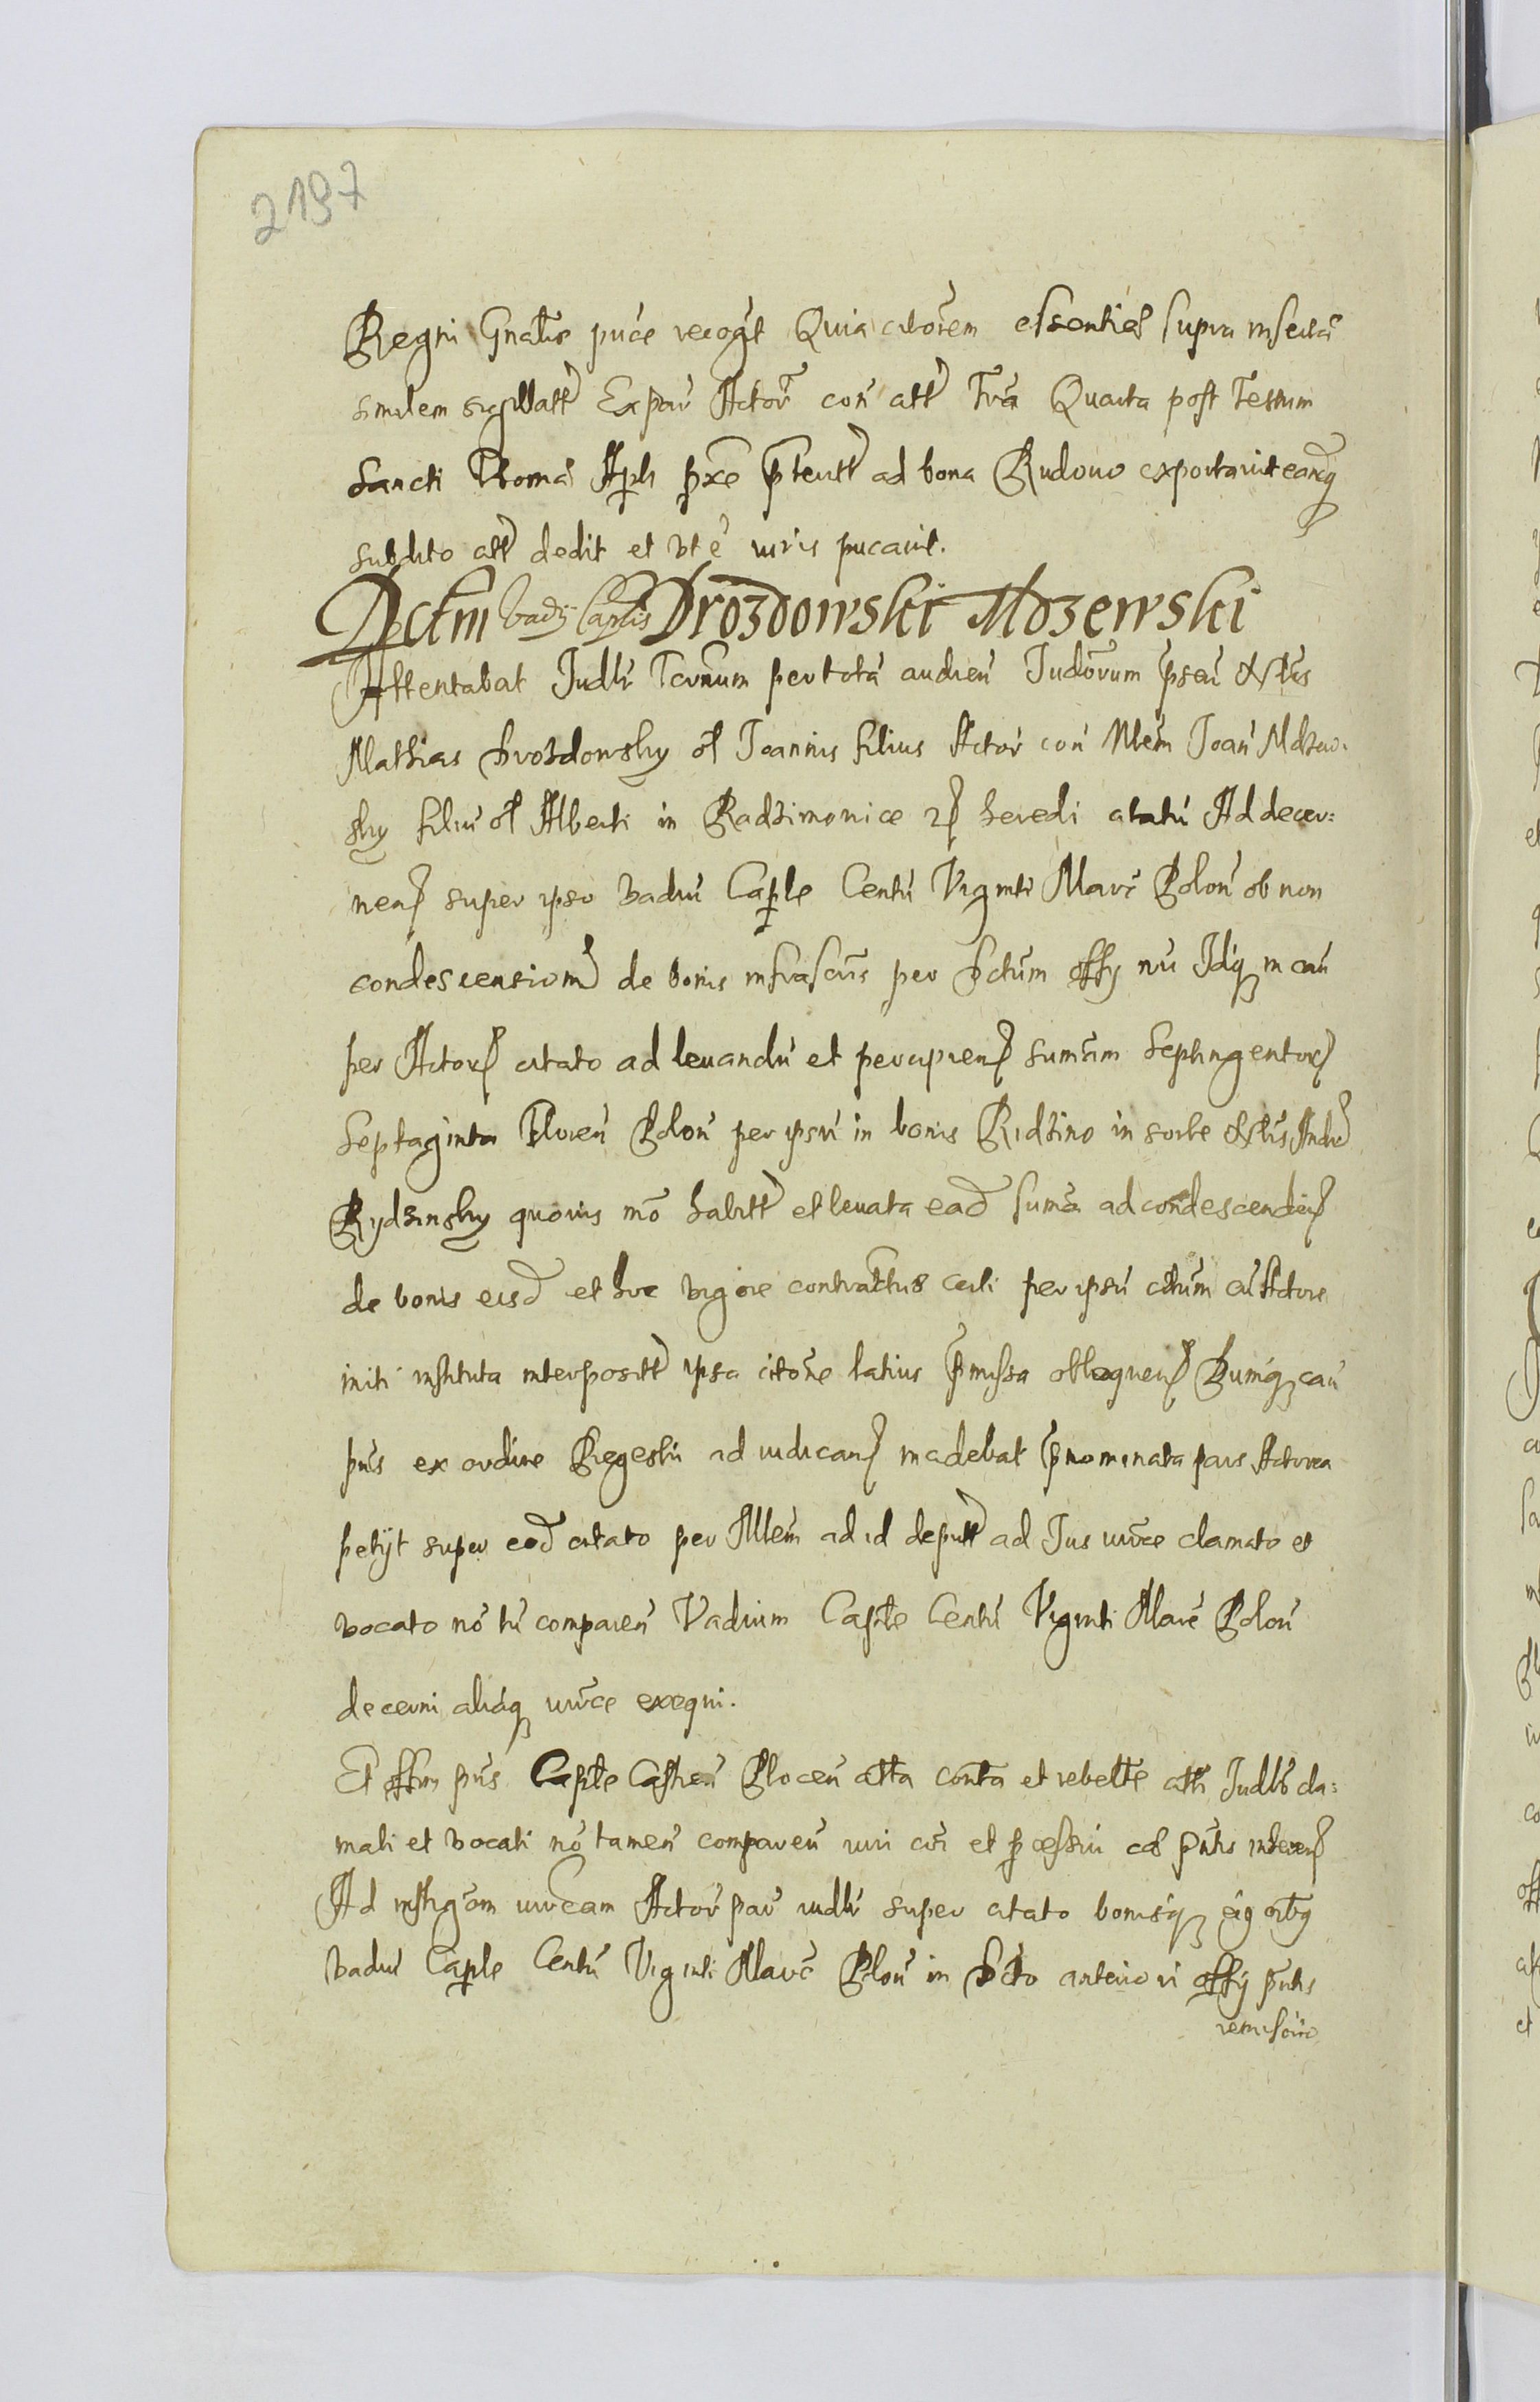 2197
Regni Gnalis puce recogt Quia citorem essentiae supra insertae
similem sigillatt Ex par Actor con att Fria Quarta post Festum
Sancti Thomae Apli pxe pteritt ad bona Rudowo exportavit eamq
subdito att dedit et vt e iuris pucavit.
Dctm vadij caplis Drozdowski Mdzewski
Attentabat Judlr Ternum per totā audien Judorum pseu Nlis
Mathias Drozdowsky ol Joannis filius Actor con Nlem Joan Mdzew.
sky filiū ol Alberti in Radzimowice heredi citatū Ad decer:
nen super ipso vadiū Caple Centū Viginti Marc Polon ob non
condescensionē de bonis infrascris per Dctum offij nri Idq in cau
per Actor citato ad levandū et percipien sumam Septingentor
Septaginta Floren Polon per ipsū in bonis Ridzino in sorte Nlis Andr
Rydzinsky quovis mō habitt et levata ead sumā ad condescendēn
de bonis eisd et hoc vigore contractus certi per ipsū citum cū Actore
initi instituta interpositt ipsa citone latius pmissa obloquen Dumq cau
pns ex ordine Regestri ad iudican incidebat pnominata pars Actorea
petijt super eod citato per Mlem ad id deputt ad Jus iurce clamato et
vocato nō tn comparen Vadium Caple Centū Viginti Marc Polon
decerni aliaq iurce exequi.
Et offm pns Caple Castren Plocen atta conta et rebelle atti Judlr cla:
mati et vocati nō tamen comparen iuri coi et pcessui cae pntis inheren
Ad instigom iurcam Actor par iudlr super citato bonisq eiq oibq
vadiū Caple Centū Viginti Marc Polon in Dcto anteriori offij pntis
remisso